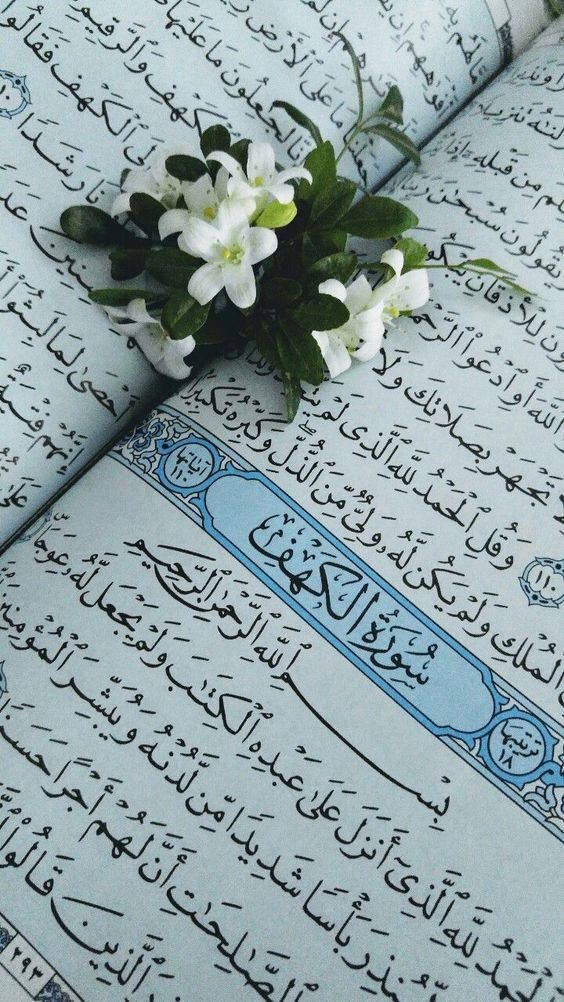 مِن قَبْلِهِۦٓ إِذَا
وَيَقُولُونَ سُبْحَٰنَ
لِلْأَذْقَانِ يَبْكُونَ
ٱللَّهَ أَوِ ٱدْعُوا۟ ٱلرَّحْمَٰنَ
تَجْهَرْ بِصَلَاتِكَ وَلَا
وَقُلِ ٱلْحَمْدُ لِلَّهِ ٱلَّذِى لَمْ
ٱلْمُلْكِ وَلَمْ يَكُن لَّهُۥ وَلِىٌّ مِّنَ ٱلذُّلِّ وَكَبِّرْهُ تَكْبِيرًا
١١٠
تَرْتِيبُهَا ١٨ سُورَةُ ٱلْكَهْفِ آيَاتُهَا ١١٠
بِسْمِ ٱللَّهِ ٱلرَّحْمَٰنِ ٱلرَّحِيمِ
ٱلْحَمْدُ لِلَّهِ ٱلَّذِىٓ أَنزَلَ عَلَىٰ عَبْدِهِ ٱلْكِتَٰبَ وَلَمْ يَجْعَل لَّهُۥ عِوَجَا
لِّيُنذِرَ بَأْسًا شَدِيدًا مِّن لَّدُنْهُ وَيُبَشِّرَ ٱلْمُؤْمِنِينَ
ٱلصَّٰلِحَٰتِ أَنَّ لَهُمْ أَجْرًا حَسَنًا
ٱلَّذِينَ قَالُوا۟
٢٩٣
لَهُم بِهِۦ
أَفْوَٰهِهِمْ إِن
مَا عَلَى ٱلْأَرْضِ
لَجَٰعِلُونَ مَا عَلَيْهَا
ٱلْكَهْفِ وَٱلرَّقِيمِ
إِلَى ٱلْكَهْفِ فَقَالُوا۟
رَشَدًا
١٠
سِنِينَ
أَحْصَىٰ لِمَا لَبِثُوٓا۟
إِنَّهُمْ فِتْيَةٌ
عَلَىٰ